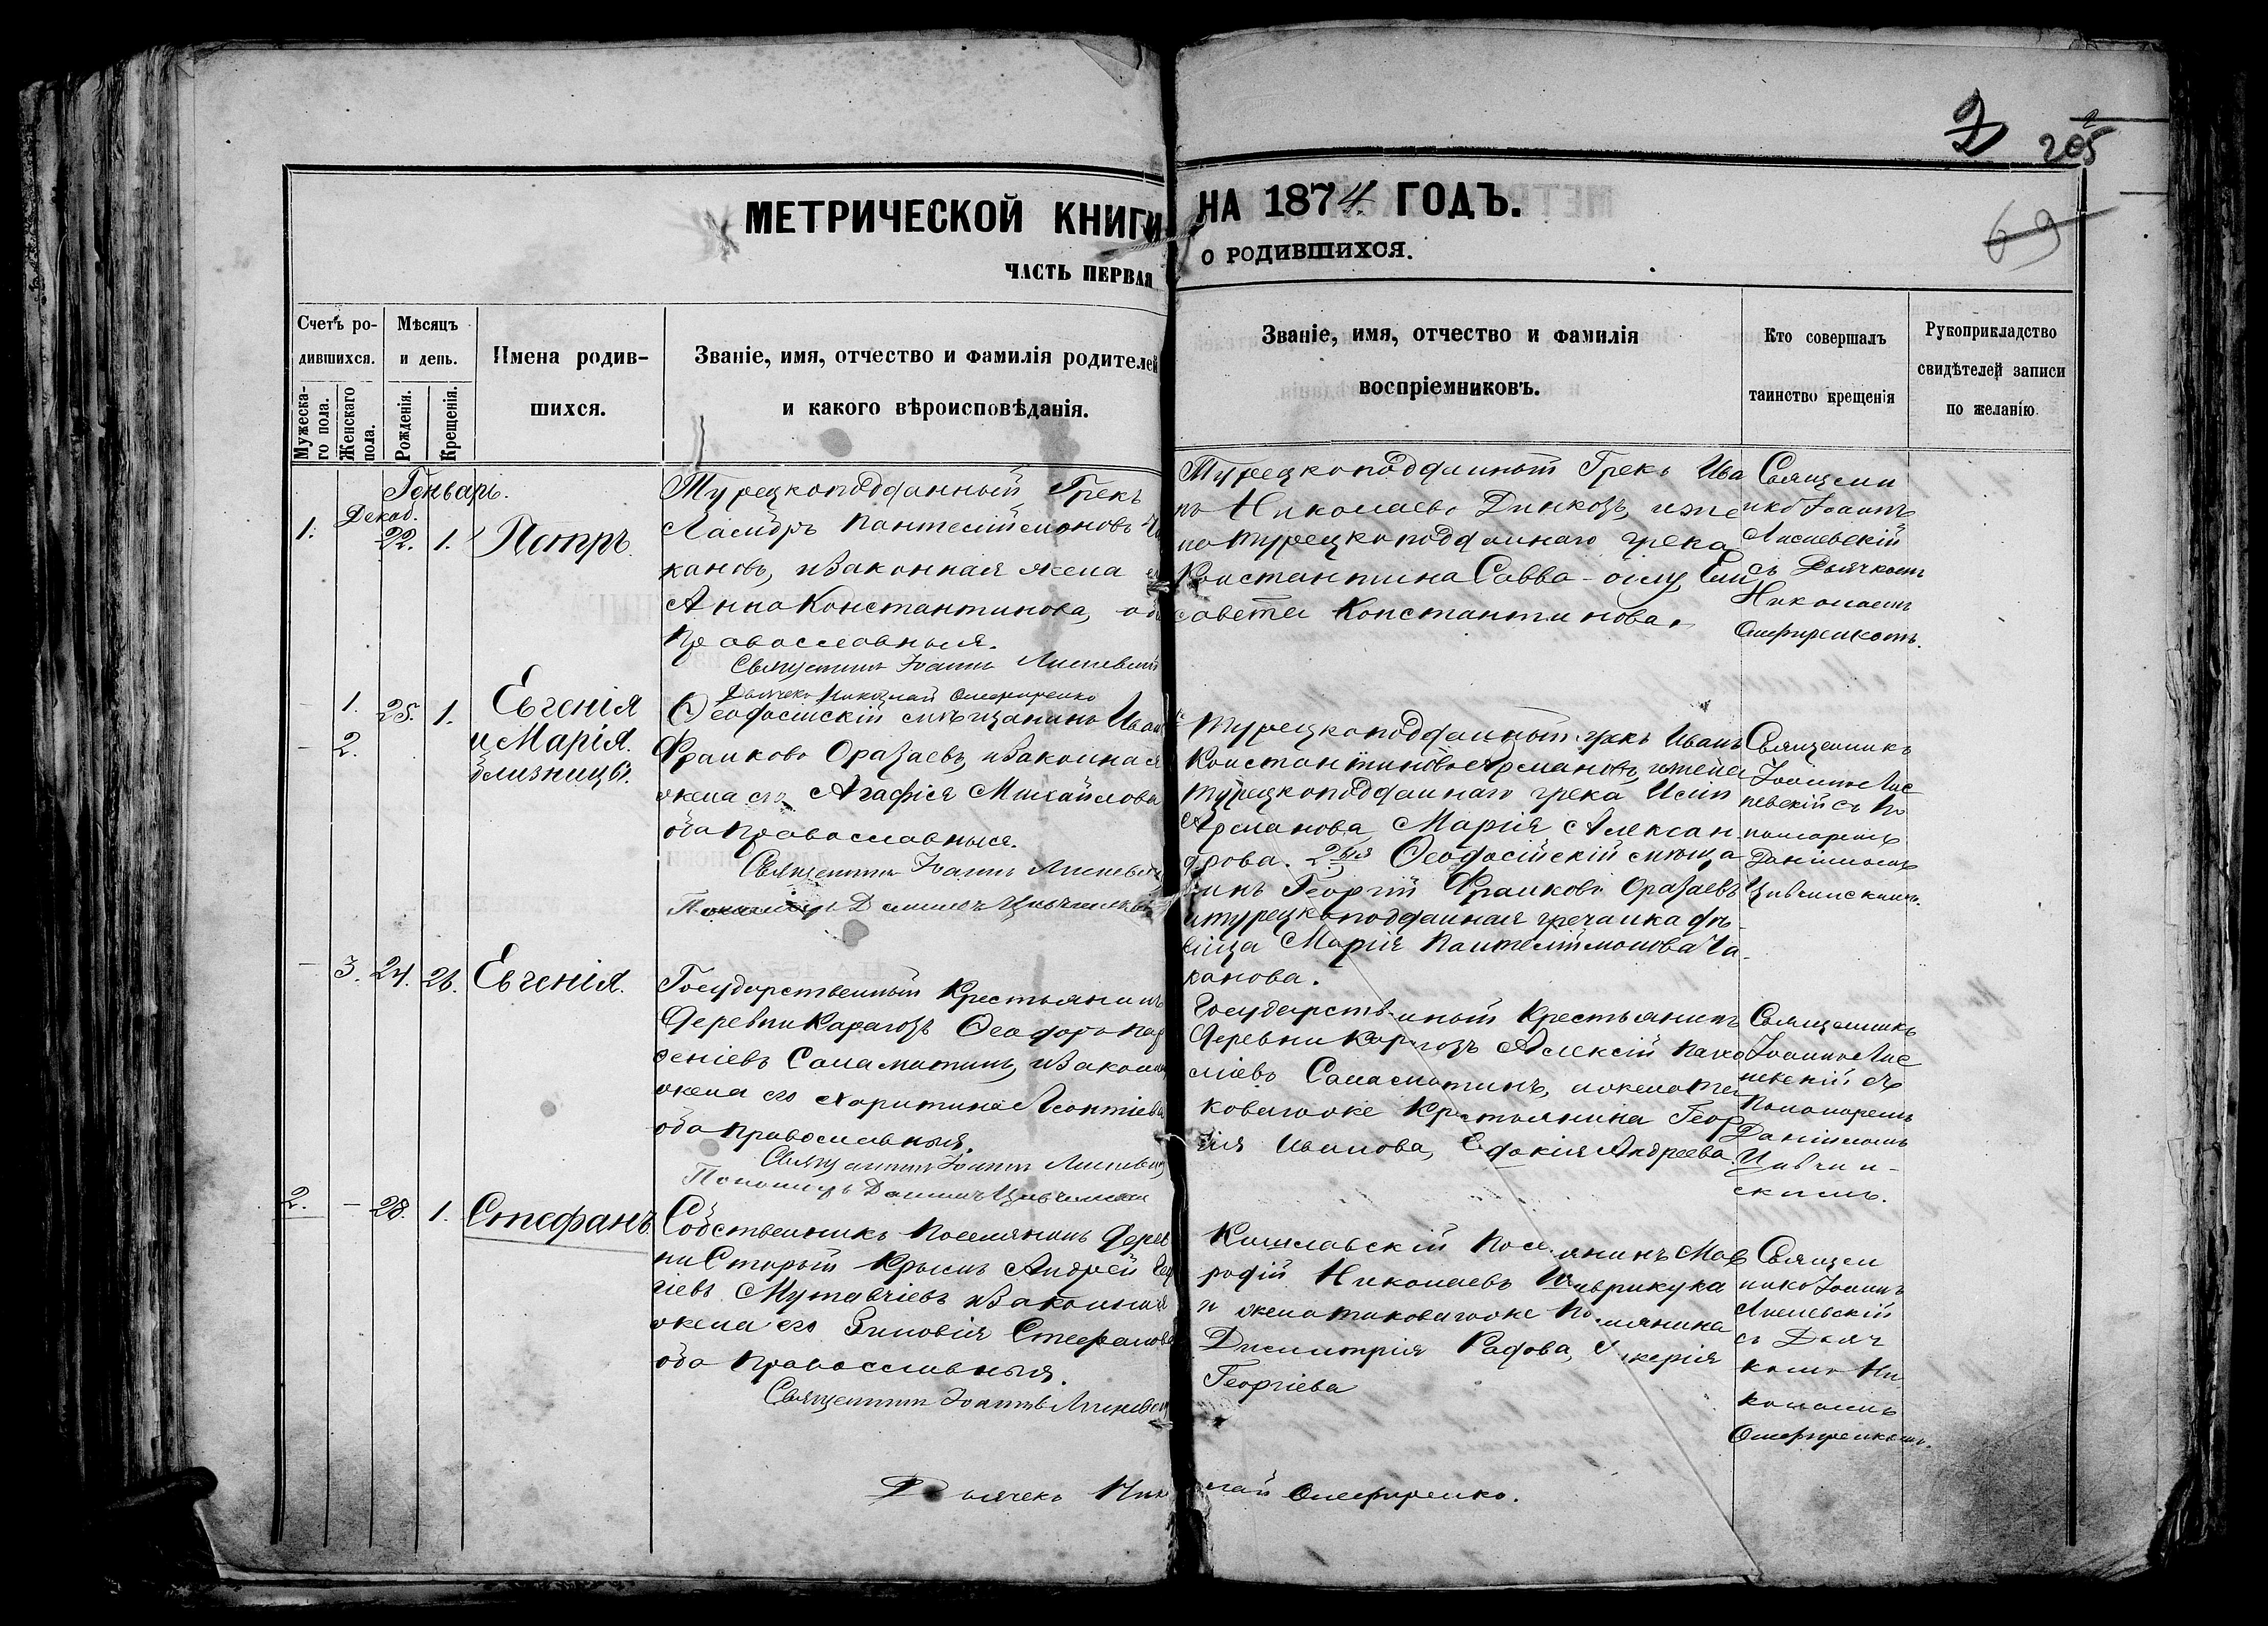 2
2
205
69
МЕТРИЧЕСКОЙ КНИГИ НА 1874 ГОДЪ.
ЧАСТЬ ПЕРВАЯ О РОДИВШИХСЯ.
Счетъ ро-
дившихся.
Мужеска-
го пола.
Женскаго
пола.
Мѣсяцъ
и день.
Рожденія.
Крещенія.
Имена родив-
шихся.
Званіе, имя, отчество и фамилія родителей
и какого вѣроисповѣданія.
Званіе, имя, отчество и фамилія
воспріемниковъ.
Кто совершалъ
таинство крещенія
Рукоприкладство
свидѣтелей записи
по желанію.
Генварь.
Декаб.
1. 22. 1. Петръ.
Турецкоподданный Грекъ
Пантелеймоновъ
кановъ, и законная жена
Анна Константинова, оба
Православныя.
Священникъ Іоаннъ
Дьячекъ Николай Олефиренко
Турецкоподданный Грекъ Ива
нъ Николаевъ Динковъ, и же
на турецкоподданнаго грека
Константина Савва-оглу, Ели
савета Константинова.
Священ
никъ Іоаннъ
съ Дьячкомъ
Николаемъ
Олефиренкомъ.
1. 25. 1. Евгенія
2. и Марія.
близницы.
Ѳеодосійскій мѣщанинъ Иван
Франковъ Оразаевъ, и законная
жена его Агафія Михайлова
оба Православныя.
Священникъ Іоаннъ
Пономарь Даниилъ
Турецкоподданный грекъ Иванъ
Константиновъ Армановъ, и жена
турецкоподданнаго грека
Арманова, Марія Алексан-
дрова. 2й Ѳеодосійскій мѣща
нинъ Георгій Франковъ Оразаевъ
и турецкоподданная гречанка дѣ-
вица Марія Пантелеймонова Ча
канова.
Священникъ
Іоаннъ Лис
невскій съ По
номаремъ
Даніиломъ
- 3. 24. 26. Евгенія.
Государственный Крестьянинъ
Деревни Карагозъ Ѳеодоръ Пар
ѳеніевъ Саламатинъ, и законная
жена его Харитина Леонтіева
оба Православныя.
Священникъ Іоаннъ
Пономарь Даниилъ
Государственный Крестьянинъ
Деревни Карагозъ Алексій
Саламатинъ, и жена та
коваго же Крестьянина Геор
гія Иванова, Евдокія Андреева.
Священникъ
Іоаннъ Лис
невскій съ
Пономаремъ
Даніиломъ
2. - 28. 1. Стефанъ.
Собственникъ Поселянинъ дерев
ни Старый Крымъ Андрей Геор
гіевъ Мутавчіевъ и законная
жена его Зиновія Стефанова
оба Православныя.
Священникъ Іоаннъ
Кишлавскій Поселянинъ Мав
родій Николаевъ
и жена таковаго же Поселянина
Димитрія Радова,
Георгіева
Священ
никъ Іоаннъ
съ Дьяч
комъ Ни
колаемъ
Олефиренкомъ.
Дьячекъ Николай Олефиренко.